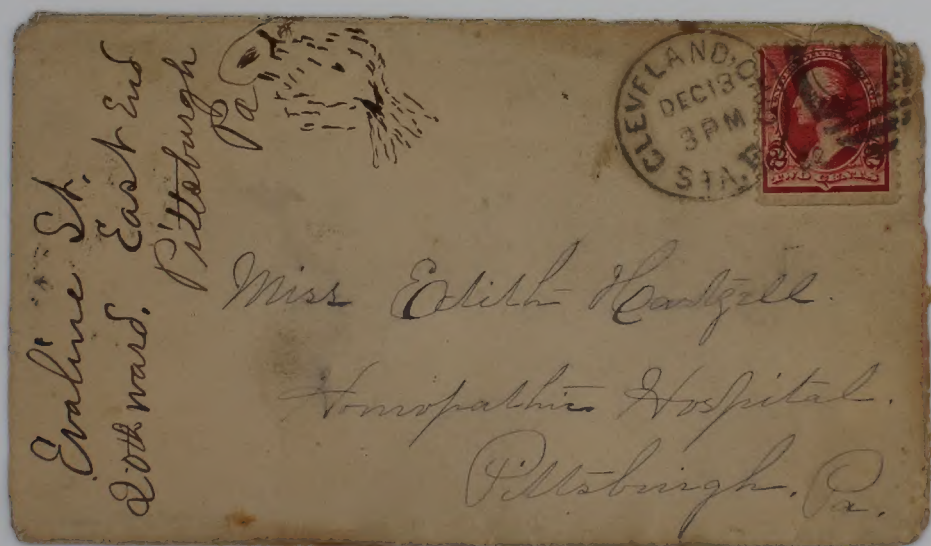 Evaline St.
20th ward. East End
Pittsburgh
Pa
CLEVELAND, O.
DEC 13
3 PM
STA. B
TWO CENTS
Miss Edith Hartzell.
Homopathic Hospital.
Pittsburgh, Pa.